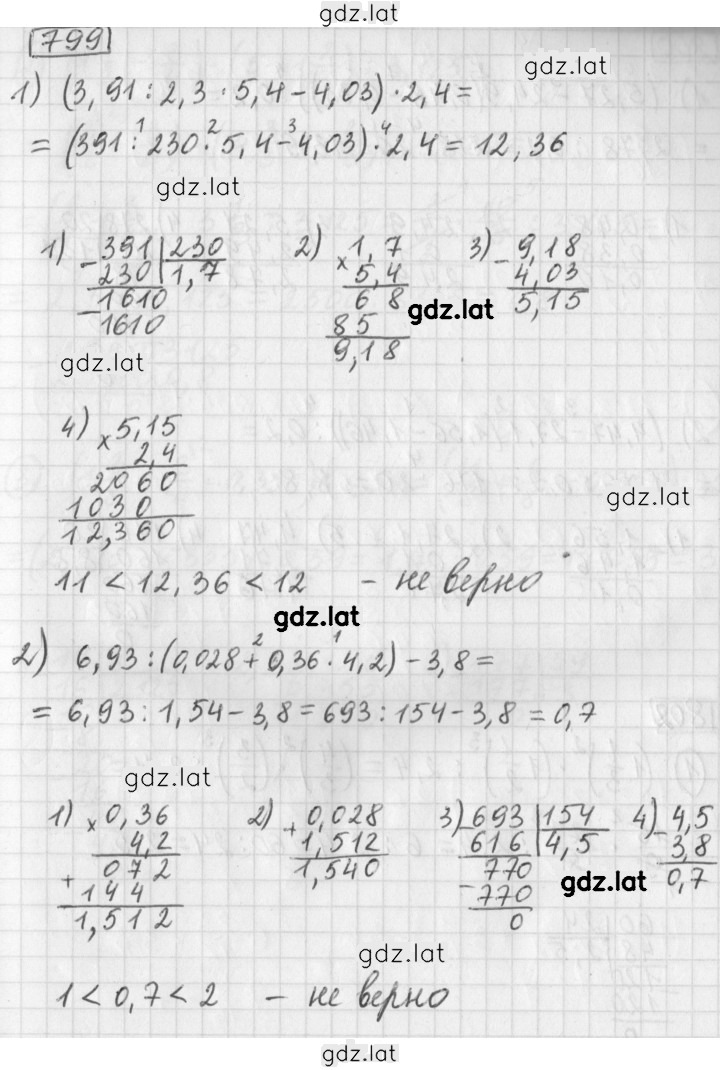 gdz.lat
799
gdz.lat
1) (3,91:2,3·5,4-4,03)·2,4=
= (391:¹230·²5,4-³4,03)·⁴2,4=12,36
gdz.lat
1) -391|230 2) ×1,7 3) -9,18
230|1,7 5,4 4,03
-1610 68 gdz.lat 5,15
1610 85
9,18
gdz.lat
4) ×5,15
2,4
2060
1030 gdz.lat
12,360
11<12,36<12 - не верно
gdz.lat
2) 6,93:(0,028+²0,36·¹4,2)-3,8=
= 6,93:1,54-3,8=693:154-3,8=0,7
gdz.lat
1) ×0,36 2) +0,028 3) -693|154 4) -4,5
4,2 1,512 616|4,5 3,8
+072 1,540 770 0,7
144 -770 gdz.lat
1,512 0
gdz.lat
1<0,7<2 - не верно
gdz.lat